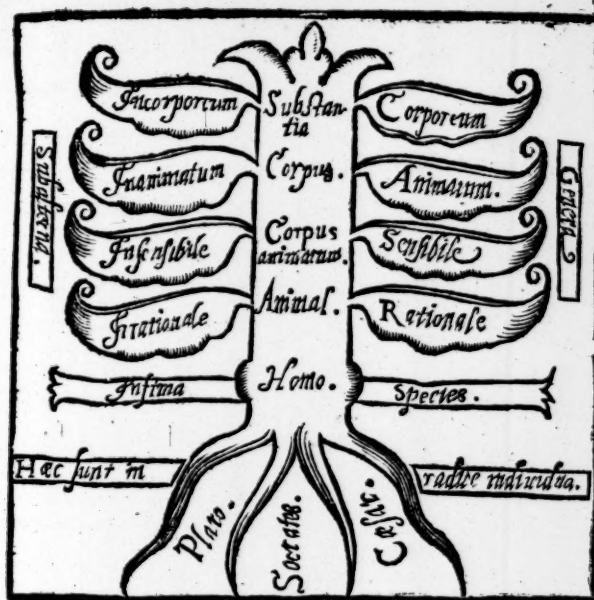 Incorporeum
Substan-
tia
Corporeum
Subalterna.
Inanimatum
Corpus.
Animatum.
Genera
Insensibile
Corpus
animatum.
Sensibile
Irrationale
Animal.
Rationale
Infima
Homo.
Species.
Hæc sunt in
radice indiuidua.
Plato.
Socrates.
Cæsar.